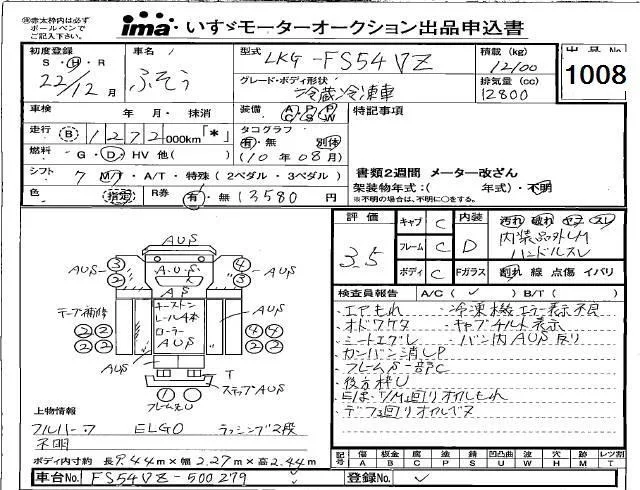 ※赤太枠内は必ずボールペンでご記入下さい。
ima いすゞモーターオークション出品申込書
初度登録 S・H・R 22/12月
車名 ふそう
型式 LKG-FS54VZ
積載(kg) 12100
出品No 1008
グレード・ボディ形状 冷蔵冷凍車
排気量(cc) 12800
車検 年・月・抹消
装備 AC PS PW
特記事項
走行 B 1272000km「*」
タコグラフ 有・無 別体
(10年08月)
燃料 G・D・HV 他( )
書類2週間 メーター改ざん
シフト 7 MT・A/T・特殊(2ペダル・3ペダル)
架装物年式:( 年式)・不明
※不明の場合は、不明に○をする。
色 指定 R券 有・無 13580円
評価 3.5
キャブ C
フレーム C
ボディ C
内装 D
Fガラス
汚れ 破れ ヤケ スレ
内装品外しM
ハンドルスレ
割れ 線 点傷 イバリ
検査員報告 A/C(✓) B/T( )
・エアもれ ・冷凍機エラー表示不良
・オドワケタ ・キャブチルト表示
・シートエグレ ・バン内AUS反り
・カンバン消しP
・フレームS一部C
・後方枠U
・E/ま、T/M廻りオイルもれ
・デフ廻りオイルベタ
AUS
AUS 3 2
4 3 AUS
A・U・S
AS
テープ補修
キーストン
レール4本
ローラー
AUS
AUS
2 2
2 2
4 4
2 2
T
ステップAUS
1
フレーム先U
上物情報
フルハーフ ELGO ラッシング2段
不明
ボディ内寸約 長9.44m×幅2.27m×高2.44m
記号 傷A 板B 腐C 塗P 錆S 凹凸曲U 波W 穴H 欠K 無M ★T レツ割
車台No. FS54VZ-500279
登録No. ✓